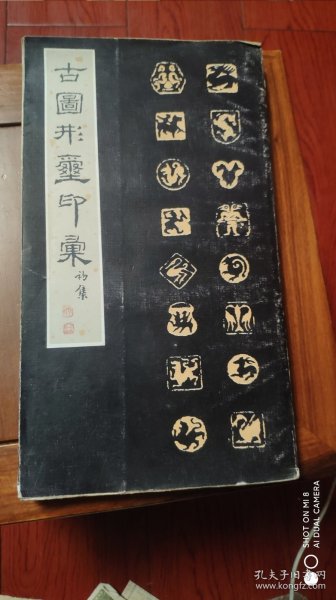 古圖形璽印彙
初集
SHOT ON MI 8
AI DUAL CAMERA
孔夫子旧书网
www.kongfz.com